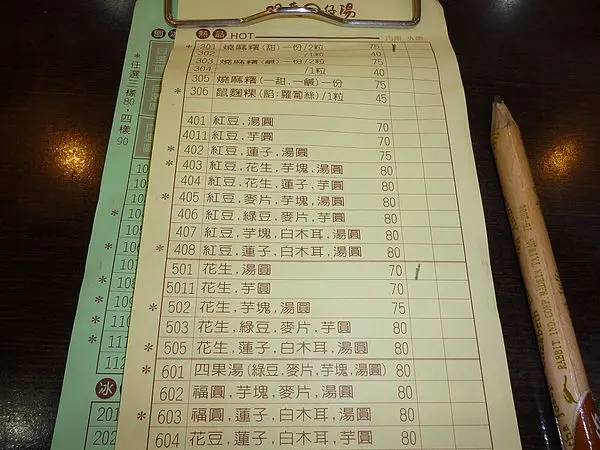 仔湯
熱品 HOT 內用 外帶
* 301 燒麻糬(甜)一份/2粒 75
302 /1粒 40
303 燒麻糬(鹹)一份/2粒 75
304 /1粒 40
305 燒麻糬(一甜,一鹹)一份 75
* 306 鼠麴粿(餡:蘿蔔絲)/1粒 45
401 紅豆,湯圓 70
4011 紅豆,芋圓 70
* 402 紅豆,蓮子,湯圓 75
* 403 紅豆,花生,芋塊,湯圓 80
404 紅豆,花生,蓮子,芋圓 80
* 405 紅豆,麥片,芋塊,湯圓 80
406 紅豆,綠豆,麥片,芋圓 80
407 紅豆,芋塊,白木耳,湯圓 80
* 408 紅豆,蓮子,白木耳,湯圓 80
501 花生,湯圓 70
5011 花生,芋圓 70
* 502 花生,芋塊,湯圓 75
503 花生,綠豆,麥片,芋圓 80
* 505 花生,蓮子,白木耳,湯圓 80
* 601 四果湯(綠豆,麥片,芋塊,湯圓) 80
602 福圓,芋塊,麥片,湯圓 80
* 603 福圓,蓮子,白木耳,湯圓 80
604 花豆,蓮子,白木耳,芋圓 80
*任選三樣80,四樣90
112
冰
201
202